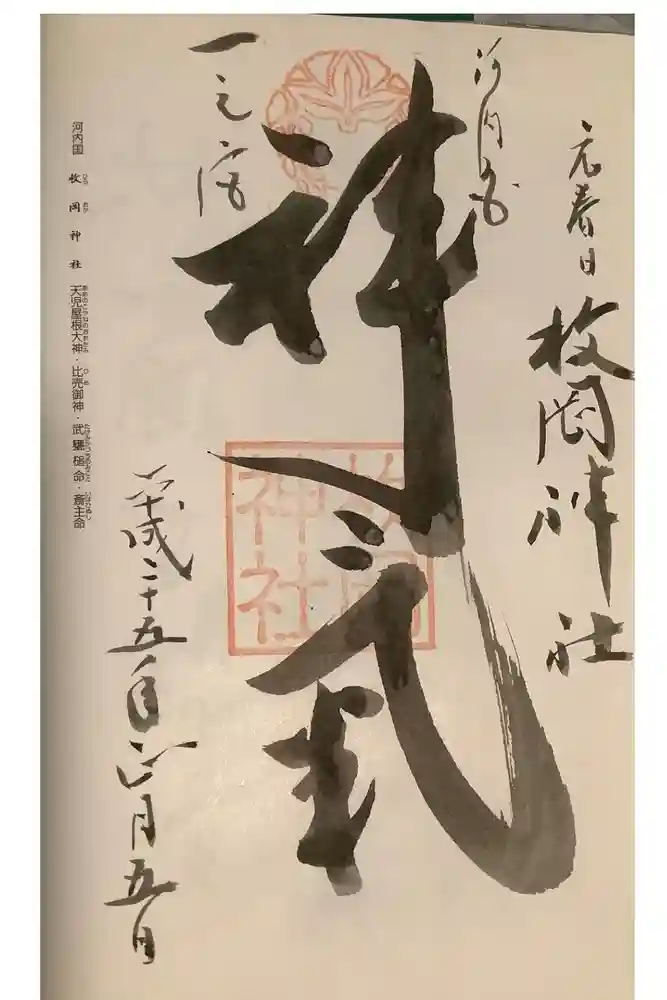 元春日 枚岡神社
河内国
一之宮
神氣
枚岡神社
平成二十五年正月五日
河内国 枚岡神社 天児屋根大神・比売御神・武甕槌命・斎主命